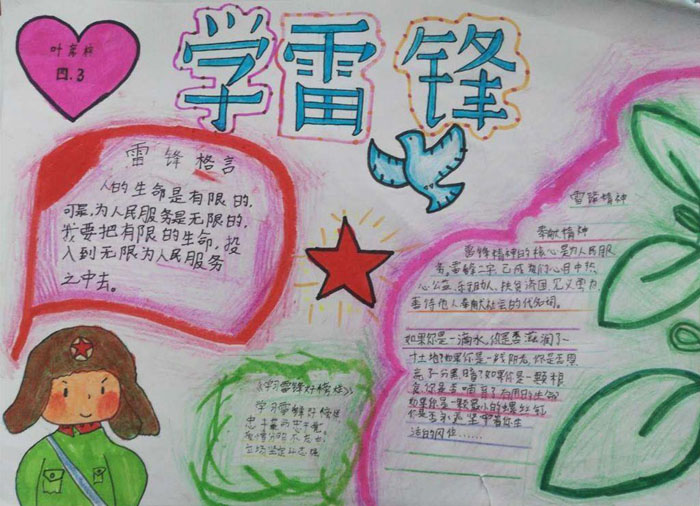 学雷锋
叶
四.3
雷锋格言
人的生命是有限的,
可是,为人民服务是无限的,
我要把有限的生命,投
入到无限为人民服务
之中去。
雷锋精神
奉献精神
雷锋精神的核心是为人民服
务,雷锋二字,已成为们心目中热
心公益、乐于助人、扶贫济困、见义勇为
善待他人奉献社会的代名词。
如果你是一滴水,你是否滋润了一
寸土地?如果你是一线阳光,你是否照
亮了一分黑暗?如果你是一颗粮
食,你是否哺育了有用的生命?
如果你是一颗最小的螺丝钉
你是否永远坚守着你生
活的岗位......
《学习雷锋好榜样》
学习雷锋好榜样
忠于革命忠于党
爱憎分明不忘本
立场坚定斗志强